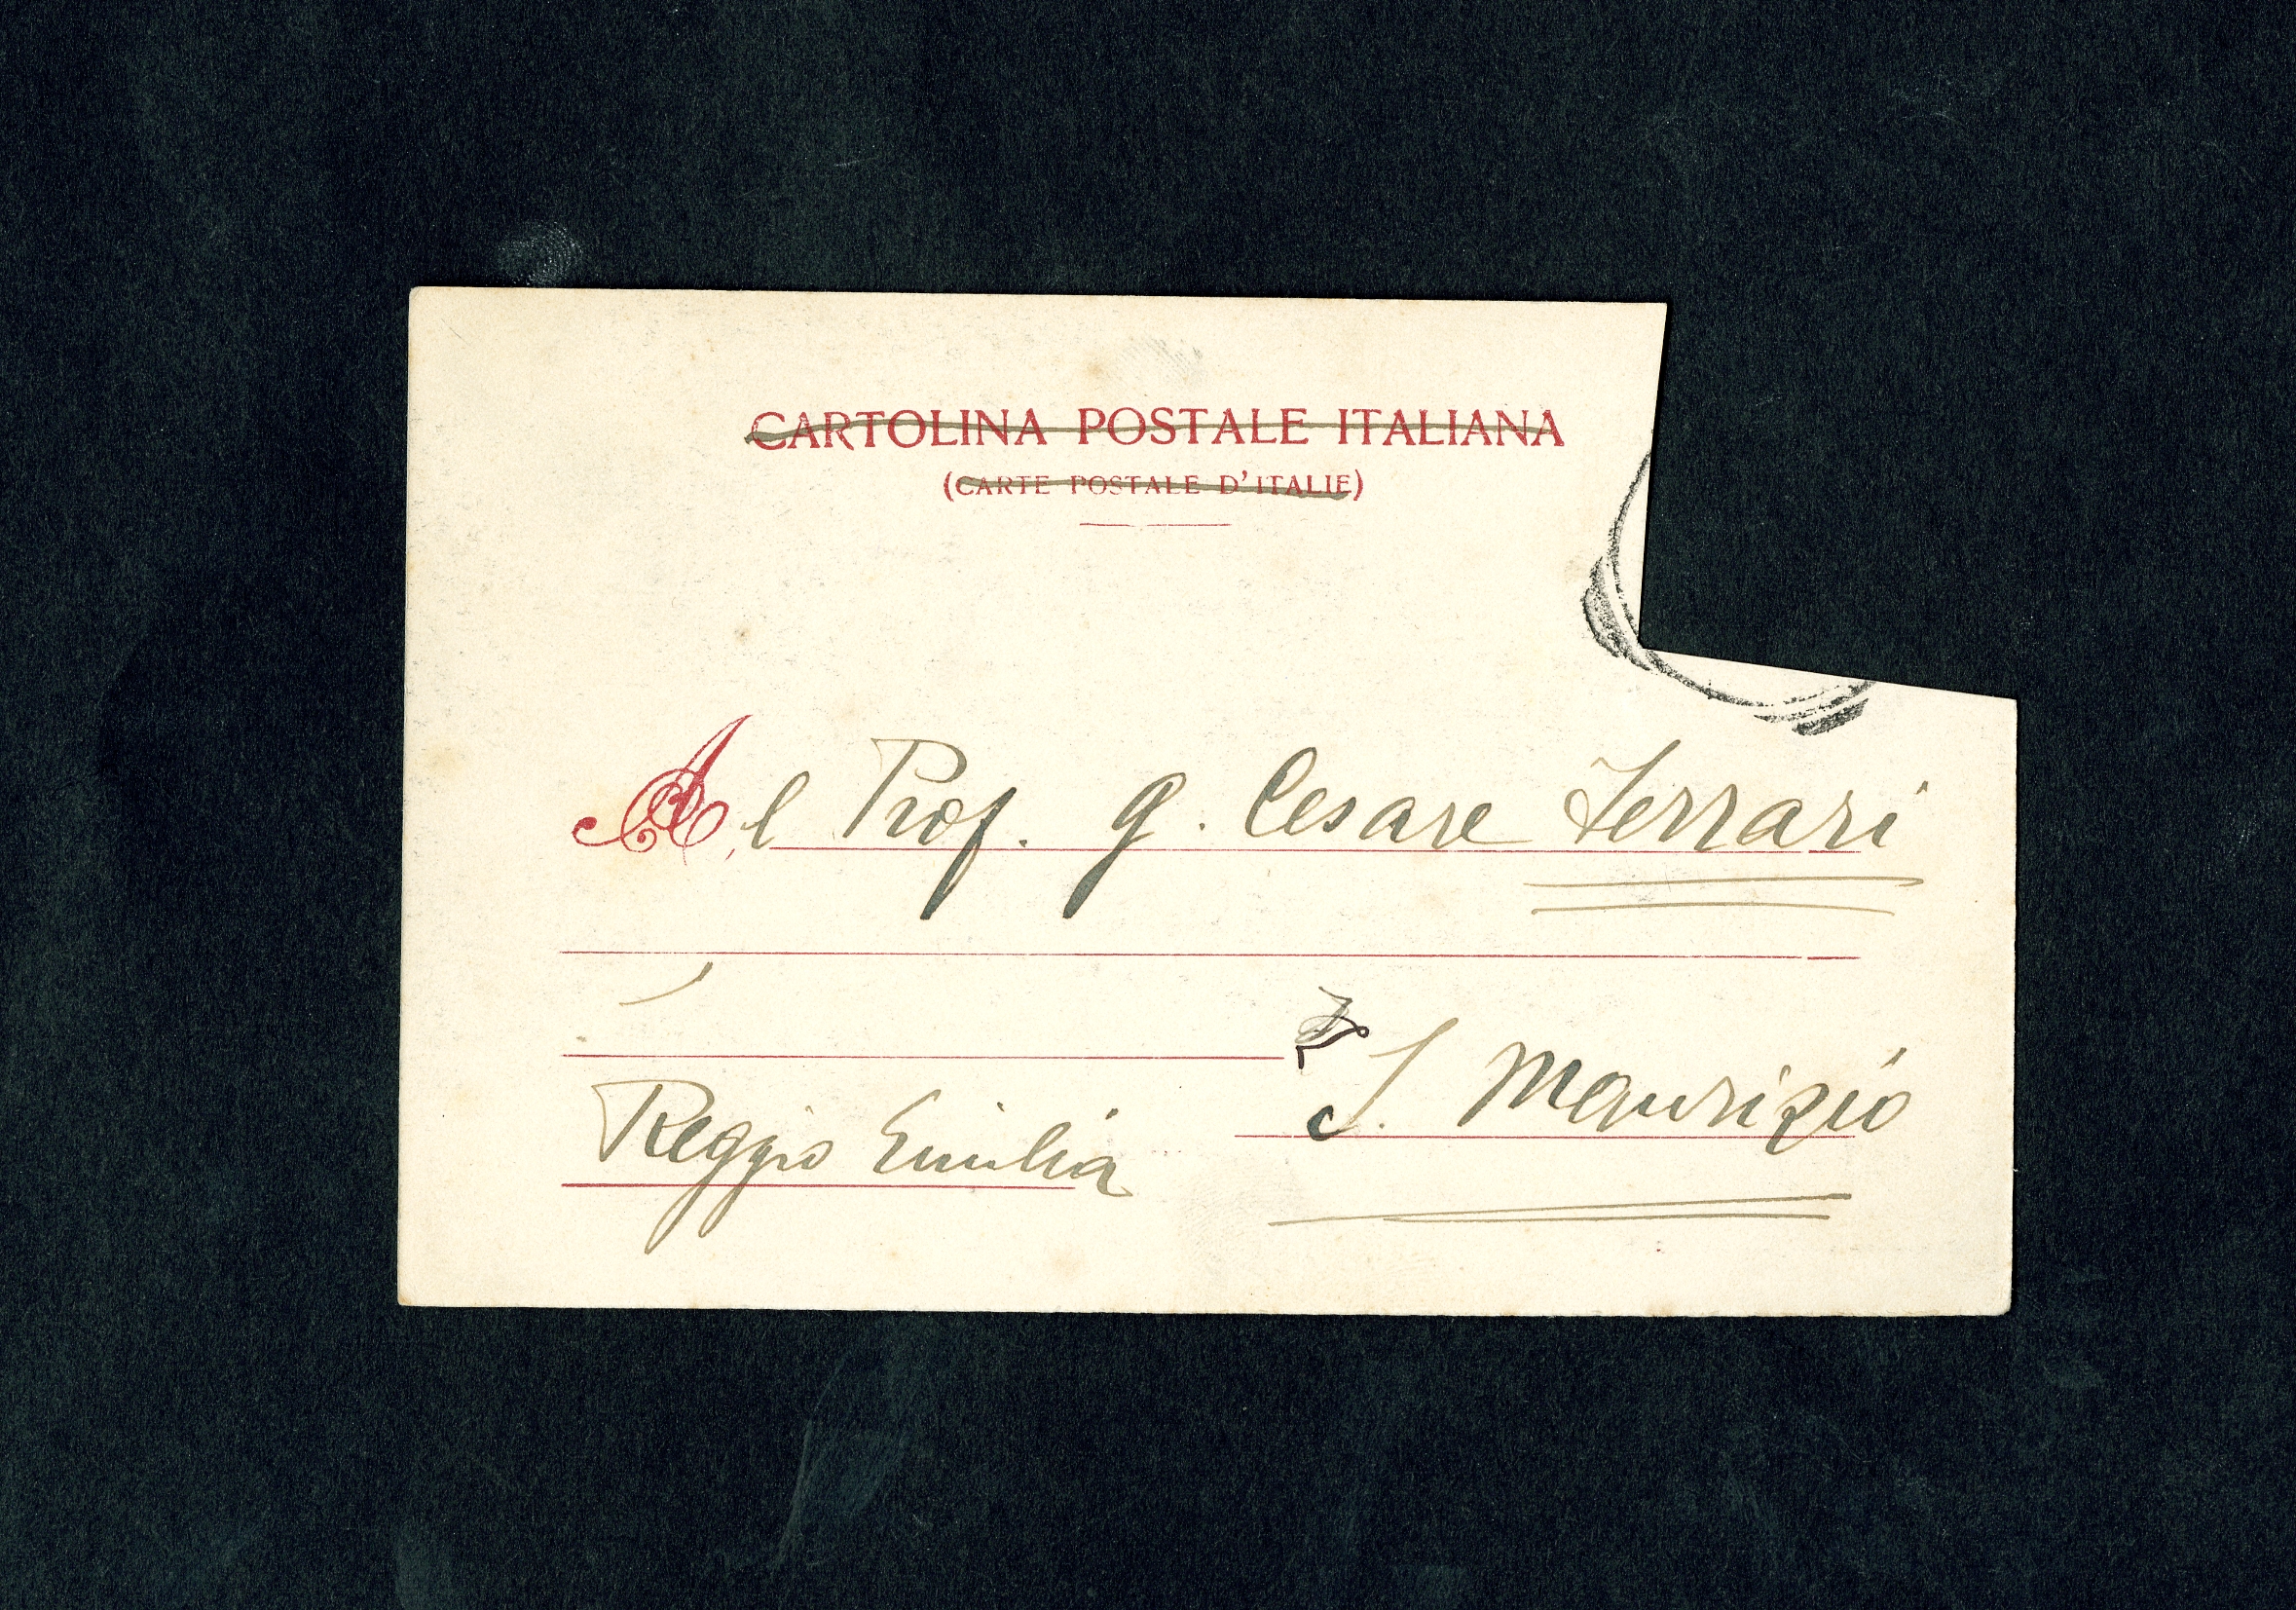 CARTOLINA POSTALE ITALIANA
(CARTE POSTALE D'ITALIE)
Al Prof. G. Cesare Ferrari
S. Maurizio
Reggio Emilia